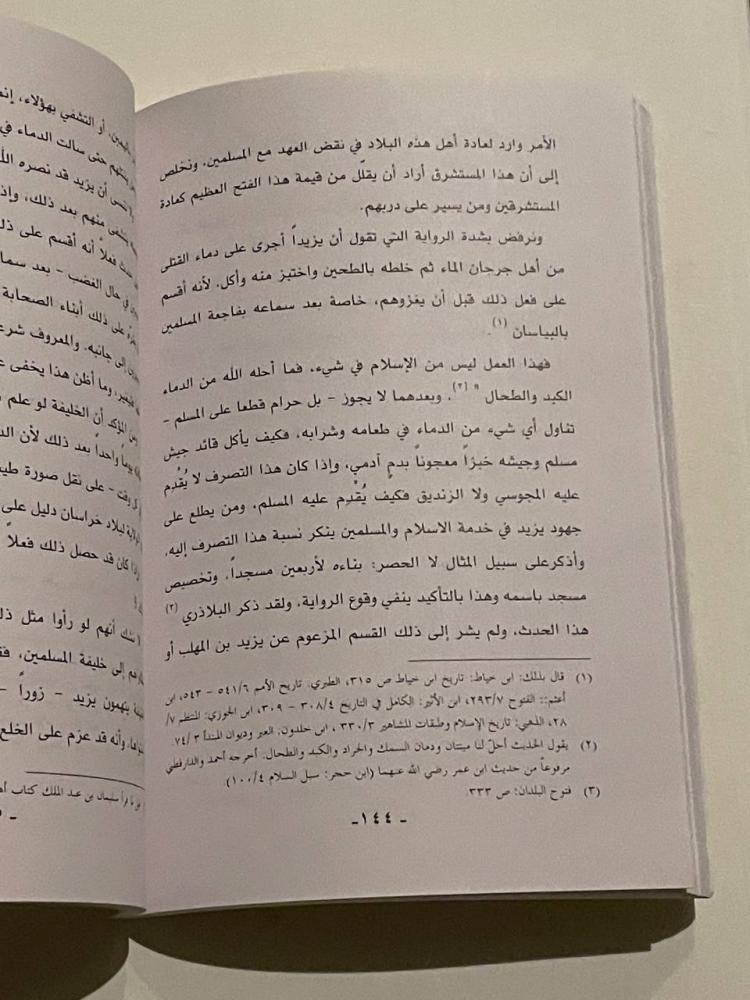 الأمر وارد لعادة أهل هذه البلاد في نقض العهد مع المسلمين. ونخلص
إلى أن هذا المستشرق أراد أن يقلّل من قيمة هذا الفتح العظيم كعادة
المستشرقين ومن يسير على دربهم.
ونرفض بشدة الرواية التي تقول أن يزيداً أجرى على دماء القتلى
من أهل جرجان الماء ثم خلطه بالطحين واختبز منه وأكل. لأنه أقسم
على فعل ذلك قبل أن يغزوهم، خاصة بعد سماعه بفاجعة المسلمين
بالبياسان (١).
فهذا العمل ليس من الإسلام في شيء، فما أحله الله من الدماء
الكبد والطحال " (٢). وبعدهما لا يجوز – بل حرام قطعا على المسلم –
تناول أي شيء من الدماء في طعامه وشرابه، فكيف يأكل قائد جيش
مسلم وجيشه خبزاً معجوناً بدمٍ آدمي، وإذا كان هذا التصرف لا يُقْدِم
عليه المجوسي ولا الزنديق فكيف يُقْدِم عليه المسلم. ومن يطلع على
جهود يزيد في خدمة الاسلام والمسلمين ينكر نسبة هذا التصرف إليه.
وأذكرعلى سبيل المثال لا الحصر: بناءه لأربعين مسجداً. وتخصيص
مسجد باسمه وهذا بالتأكيد ينفي وقوع الرواية. ولقد ذكر البلاذري (٢)
هذا الحدث. ولم يشر إلى ذلك القسم المزعوم عن يزيد بن المهلب أو
(١) قال بذلك: ابن خياط: تاريخ ابن خياط ص ٣١٥، الطبري: تاريخ الأمم ٥٤١/٦ – ٥٤٣، ابن
أعثم:: الفتوح ٢٩٣/٧، ابن الأثير: الكامل في التاريخ ٣٠٨/٤ – ٣٠٩، ابن الجوزي: المنتظم ٧/
٢٨، الذهبي: تاريخ الإسلام وطبقات المشاهير ٣٣٠/٣ ، ابن خلدون: العبر وديوان المبتدأ ٧٤/٣.
(٢) يقول الحديث أحلّ لنا ميتتان ودمان السمك والجراد والكبد والطحال. أخرجه أحمد والدارقطني
مرفوعاً من حديث ابن عمر رضي الله عنهما (ابن حجر: سبل السلام ١٠٠/٤).
(٣) فتوح البلدان: ص ٣٣٣.
-١٤٤-
أو التشفي بهؤلاء، إنه
حتى سالت الدماء في
أن يزيد قد نصره الله
منهم بعد ذلك، وإذ
فعلاً أنه أقسم على ذلك
في حال الغضب – بعد سما
على ذلك أبناء الصحابة
إلى جانبه. والمعروف شرع
وما أظن هذا يخفى ع
المؤكد أن الخليفة لو علم
واحداً بعد ذلك لأن الد
– على نقل صورة طي
لبلاد خراسان دليل على
كان قد حصل ذلك فعلاً
أنهم لو رأوا مثل ذل
إلى خليفة المسلمين، فق
يتهمون يزيد – زوراً –
وأنه قد عزم على الخلع
سليمان بن عبد الملك كتاب